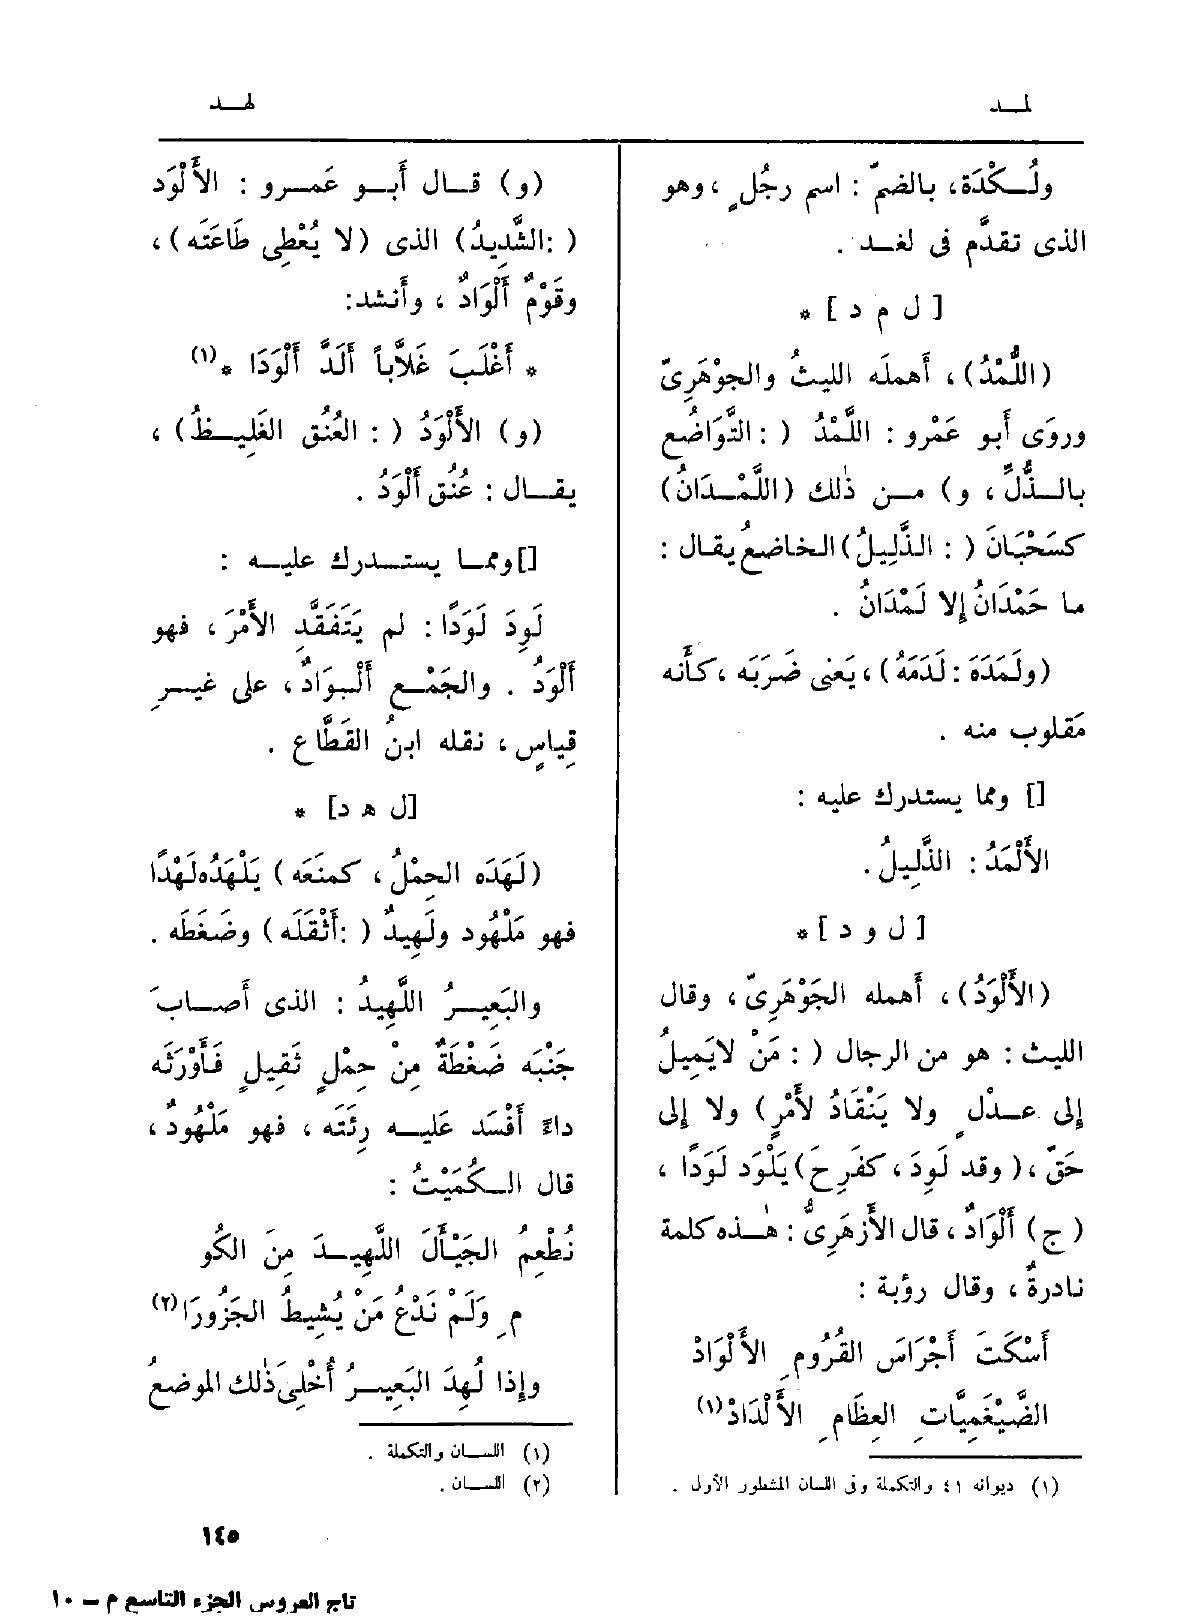 لمد
لهد
ولُكْدَة، بالضمّ : اسم رجُلٍ ، وهو
الذى تقدَّم فى لغد .
[ ل م د ] *
(اللُّمْدُ) ، أهملَه الليثُ والجوْهَرِىّ
وروَى أَبو عَمْرو : اللَّمْدُ ( : التَّوَاضُع
بالذُّلِّ ، و) من ذٰلك (اللَّمْدَانُ)
كسَحْبَانَ ( : الذَّلِيلُ) الخاضعُ يقال :
ما حَمْدَانُ إِلا لَمْدَانُ .
(ولَمَدَه : لَدَمَهُ) ، يَعنى ضَرَبَه ، كأَنه
مَقلوب منه .
[] ومما يستدرك عليه :
الأَلْمَدُ : الذَّلِيلُ .
[ ل و د ] *
(الأَلْوَدُ) ، أهمله الجَوْهَرِىّ ، وقال
الليث : هو من الرجال ( : مَنْ لايَمِيلُ
إِلى عدْلٍ ولا يَنْقَادُ لأَمْرٍ) ولا إِلى
حَقّ ، (وقد لَوِدَ ، كفَرِحَ) يَلْوَد لَوَدًا ،
( ج ) أَلْوَادٌ ، قال الأَزهَرِىُّ : هٰذه كلمة
نادرةٌ ، وقال رؤبة :
أَسْكَتَ أَجْرَاسَ القُرُومِ الأَلْوَادْ
الضَّيْغَمِيَّاتِ العِظَامِ الأَلْدَادْ(١)
(١) ديوانه ٤١ والتكملة وفى اللسان المشطور الأول .
(و) قال أَبو عَمرو : الأَلْوَد
( :الشَّدِيدُ) الذى (لا يُعْطِى طَاعَتَه) ،
وقَوْمٌ أَلْوَادٌ ، وأَنشد:
* أَغْلَبَ غَلاَّباً أَلَدَّ أَلْوَدَا *(١)
(و) الأَلْوَدُ ( : العُنُق الغَلِيظُ) ،
يقال : عُنُق أَلْوَدُ .
[] ومما يستدرك عليه :
لَوِدَ لَوَدًا : لم يَتَفَقَّدِ الأَمْرَ ، فهو
أَلْوَدُ . والجَمْع أَلْوَادٌ ، على غيرِ
قِياسٍ ، نقله ابنُ القَطَّاع .
[ل ه د] *
(لَهَدَه الحِمْلُ ، كمنَعَه) يَلْهَدُه لَهْدًا
فهو مَلْهُود ولَهِيدٌ ( :أَثْقَلَه) وضَغَطَه .
والبَعِيرُ اللَّهِيدُ : الذى أَصابَ
جَنْبَه ضَغْطَةٌ مِنْ حِمْلٍ ثَقِيلٍ فَأَوْرَثَه
داءً أَفْسَد عَليه رِئَتَه ، فهو مَلْهُودٌ ،
قال الكُمَيْتُ :
نُطْعِمُ الجَيْأَلَ اللَّهِيدَ مِنَ الكُو
مِ وَلَمْ نَدْعُ مَنْ يُشِيطُ الجَزُورَا(٢)
وإِذا لُهِدَ البَعِيرُ أُخْلِىَ ذٰلك الموضعُ
(١) اللسان والتكملة .
(٢) اللسان .
١٤٥
تاج العروس الجزء التاسع م – ١٠